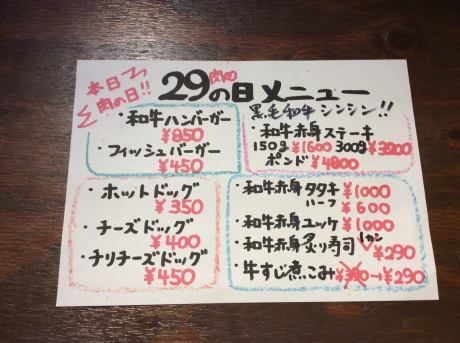 本日っ
肉の日!!
肉の
29の日メニュー
黒毛和牛シンシン!!
・和牛ハンバーガー
¥850
・フィッシュバーガー
¥450
・和牛赤身ステーキ
150g ¥1600 300g ¥3200
ポンド ¥4800
・ホットドッグ
¥350
・チーズドッグ
¥400
・チリチーズドッグ
¥450
・和牛赤身タタキ ¥1000
ハーフ ¥600
・和牛赤身ユッケ ¥1000
・和牛赤身炙り寿司 1カン
¥290
・牛すじ煮こみ → ¥290